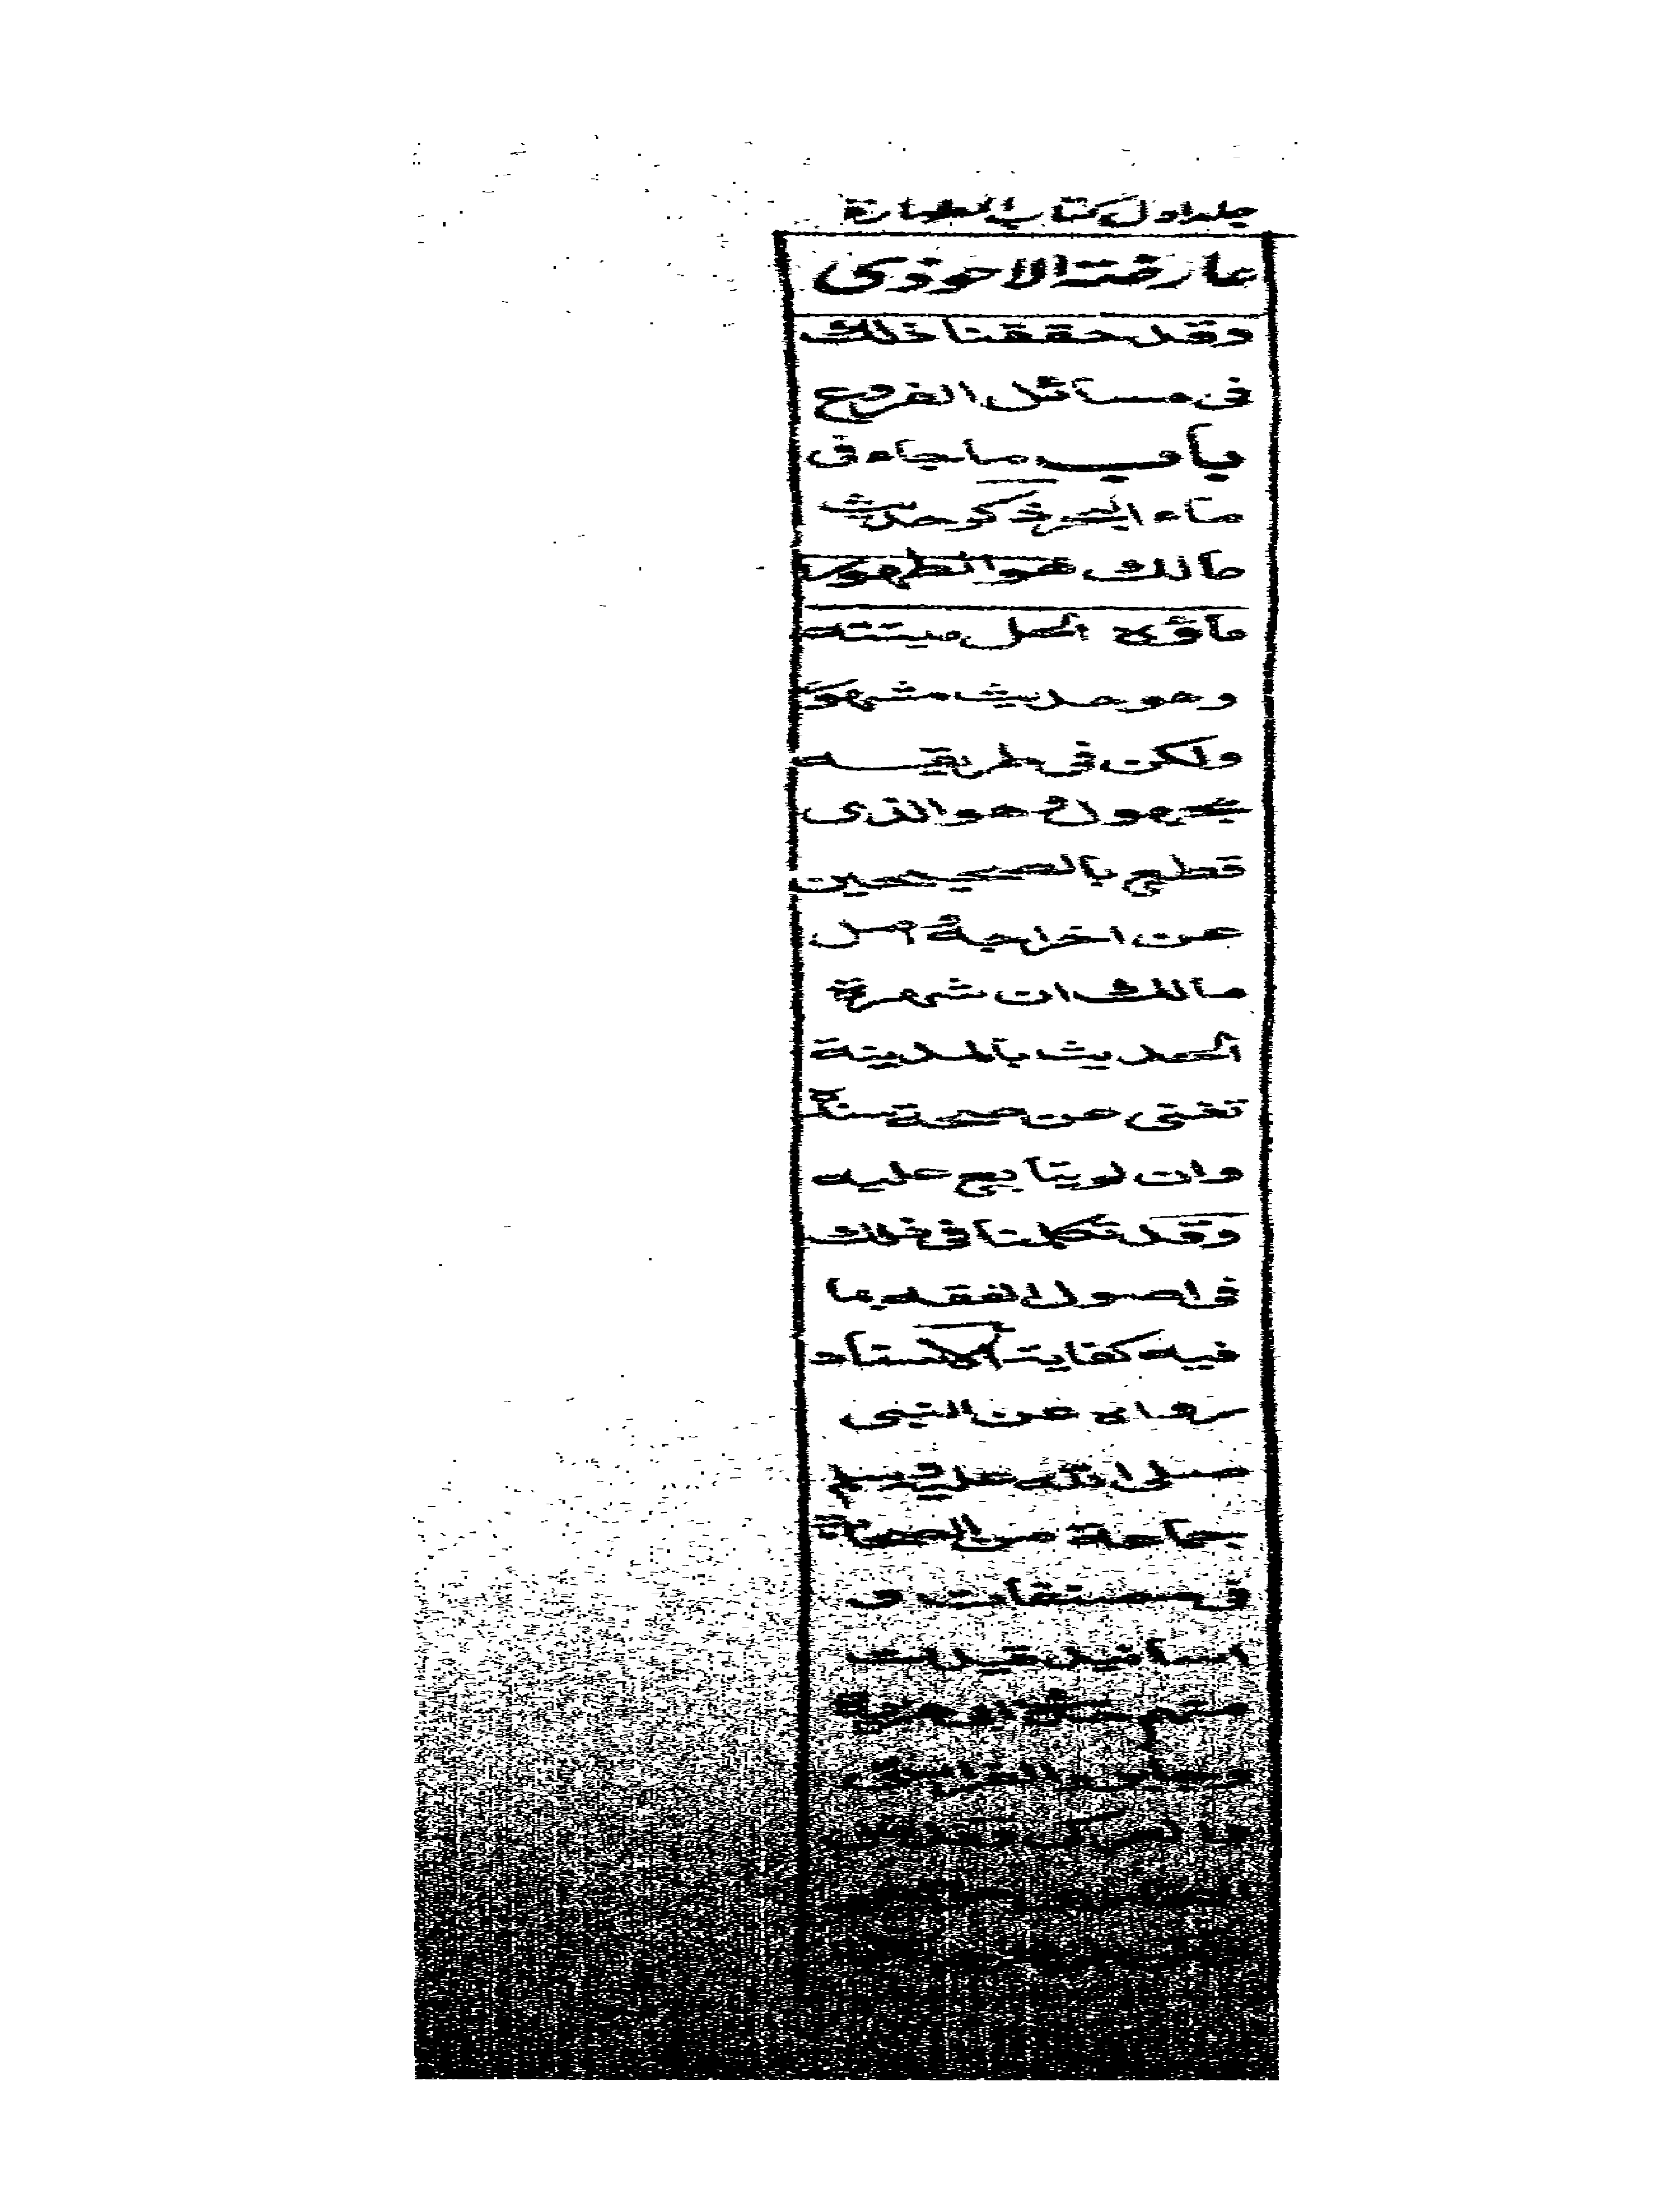 جلد اول كتاب الطهارة
عارضة الاحوذى
وقد حققنا ذلك
فى مسائل الفروع
باب ما جاء فى
ماء البحر ذكر حديث
مالك هو الطهور
ماؤه الحل ميتته
وهو حديث مشهور
ولكن فى طريقه
مجهول هو الذى
قطع بالصحيحين
عن اخراجه اصل
مالك ان شهرة
الحديث بالمدينة
تغنى عن صحة سنده
وان لم يتابع عليه
وقد تكلمنا فى ذلك
فى اصول الفقه بما
فيه كفاية الاسناد
رواه عن النبى
صلى الله عليه وسلم
جماعة من الصحابة
فى مصنفات و
اسانيد قيدت
منهم
الفراسى